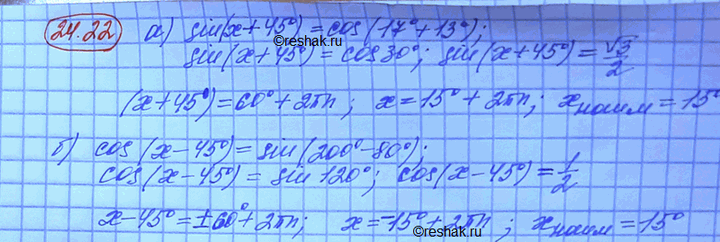 24.22 а) sin(x+45°)=cos(17°+13°);
©reshak.ru
sin(x+45°)=cos30°; sin(x+45°)=√3/2
(x+45°)=60°+2πn; x=15°+2πn; xнаим=15°
б) cos(x-45°)=sin(200°-80°);
cos(x-45°)=sin120°; cos(x-45°)=1/2
x-45°=±60°+2πn; x=-15°+2πn; xнаим=15°